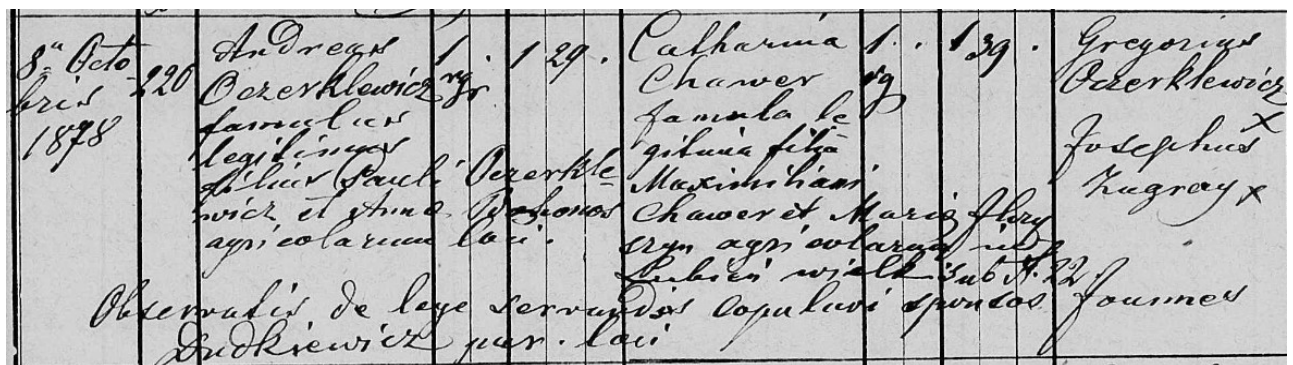 8ª Octo
bris
1878
220
Andreas
Oczerklewicz
famulus
legitimus
filius Pauli Oczerkle
wicz et Anna
agricolarum loci.
1
rg
1 29
Catharina
Chawer
famula le
gitima filia
Maximiliani
Chawer et Marie
agricolarum in
wielki sub N. 22
1
rg
1 39
Gregorius
Oczerklewicz
x
Josephus
Zugray x
Observatis de lege servandis copulavi sponsos Joannes
Dudkiewicz par. loci